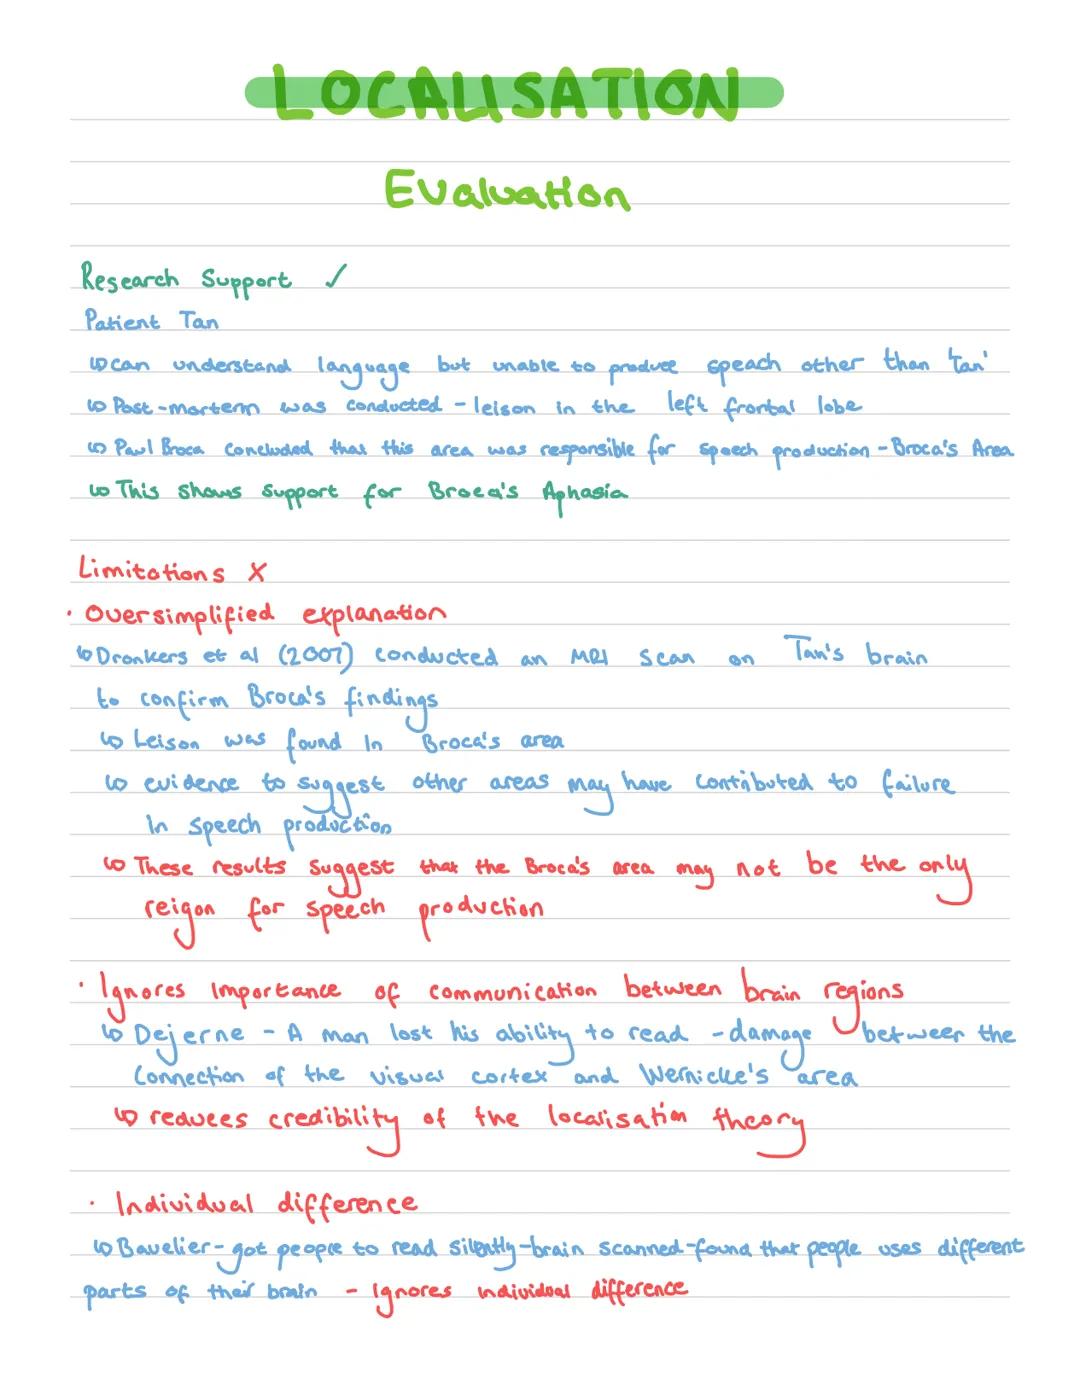 LOCALISATION
Evaluation
Research Support ✓
Patient Tan
↳ can understand language but unable to produce speach other than 'Tan'
↳ Post-mortem was conducted - leison in the left frontal lobe
↳ Paul Broca concluded that this area was responsible for speech production - Broca's Area
↳ This shows support for Broca's Aphasia
Limitations X
· Oversimplified explanation
↳ Dronkers et al (2007) conducted an MRI scan on Tan's brain
to confirm Broca's findings
↳ Leison was found in Broca's area
↳ evidence to suggest other areas may have contributed to failure
in speech production
↳ These results suggest that the Broca's area may not be the only
reigon for speech production
· Ignores importance of communication between brain regions
↳ Dejerne - A man lost his ability to read - damage between the
connection of the visual cortex and Wernicke's area
↳ reduces credibility of the localisation theory
· Individual difference
↳ Bavelier - got people to read silently - brain scanned - found that people uses different
parts of their brain - Ignores individual difference